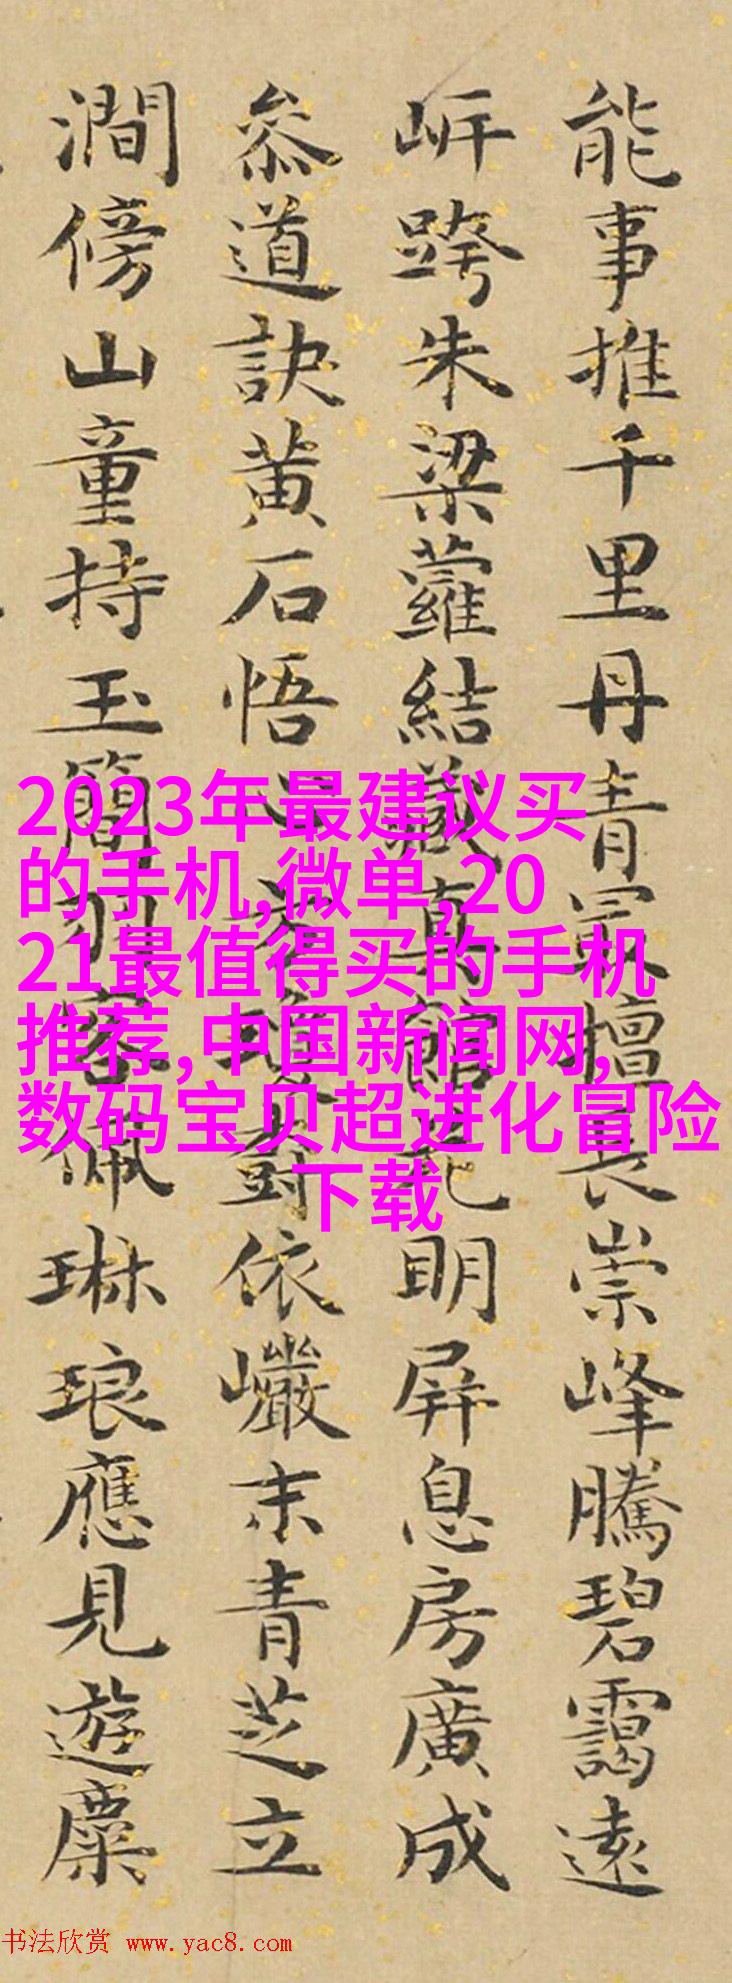 能事推千里丹青最擅長崇峰騰碧靄遠
岍跨朱梁蘿結藏真館花明屏息房廣成
叅道訣黃石悟對依巖末青芝立
澗傍山童持玉簡羽客佩琳琅應見遊麋
2023年最建议买
的手机,微单,20
21最值得买的手机
推荐,中国新闻网,
数码宝贝超进化冒险
下载
书法欣赏 www.yac8.com